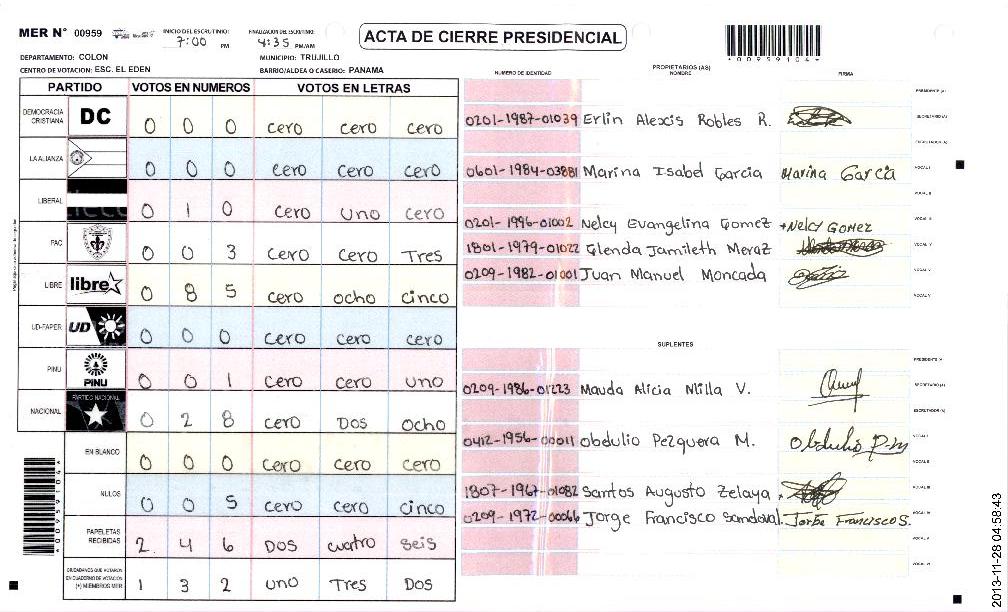 MER N° 00959 INICIO DEL ESCRUTINIO: 7:00 PM FINALIZACION DEL ESCRUTINIO: 4:35 PM/AM ACTA DE CIERRE PRESIDENCIAL
*00959104*
DEPARTAMENTO: COLON MUNICIPIO: TRUJILLO
CENTRO DE VOTACION: ESC. EL EDEN BARRIO/ALDEA O CASERIO: PANAMA
PARTIDO VOTOS EN NUMEROS VOTOS EN LETRAS
DEMOCRACIA CRISTIANA DC 0 0 0 cero cero cero
LA ALIANZA 0 0 0 cero cero cero
LIBERAL 0 1 0 cero uno cero
PAC 0 0 3 cero cero Tres
LIBRE libre 0 8 5 cero ocho cinco
UD-FAPER UD 0 0 0 cero cero cero
PINU PINU 0 0 1 cero cero uno
NACIONAL PARTIDO NACIONAL 0 2 8 cero DOS ocho
EN BLANCO 0 0 0 cero cero cero
NULOS 0 0 5 cero cero cinco
PAPELETAS RECIBIDAS 2 4 6 DOS cuatro seis
CIUDADANOS QUE VOTARON EN CUADERNO DE VOTACION (+) MIEMBROS MER 1 3 2 uno Tres Dos
*00959104*
NUMERO DE IDENTIDAD PROPIETARIOS (AS) NOMBRE FIRMA
PRESIDENTE (A)
0201-1987-01039 Erlin Alexis Robles R. SECRETARIO (A)
ESCRUTADOR (A)
0601-1984-03881 Marina Isabel Garcia Marina Garcia VOCAL I
VOCAL II
0201-1996-01002 Nelcy Evangelina Gomez +Nelcy GOMEZ VOCAL III
1801-1979-01022 Glenda Jamileth Meraz VOCAL IV
0209-1982-01001 Juan Manuel Moncada VOCAL V
VOCAL VI
SUPLENTES
PRESIDENTE (A)
0209-1986-01223 Mauda Alicia Milla V. SECRETARIO (A)
ESCRUTADOR (A)
0412-1956-00011 Obdulio Pezquera M. Obdulio P.m VOCAL I
VOCAL II
1807-1967-01082 Santos Augusto Zelaya VOCAL III
0209-1972-00066 Jorge Francisco Sandoval. Jorbe Francisco S. VOCAL IV
VOCAL V
VOCAL VI
2013-11-28 04:58:43